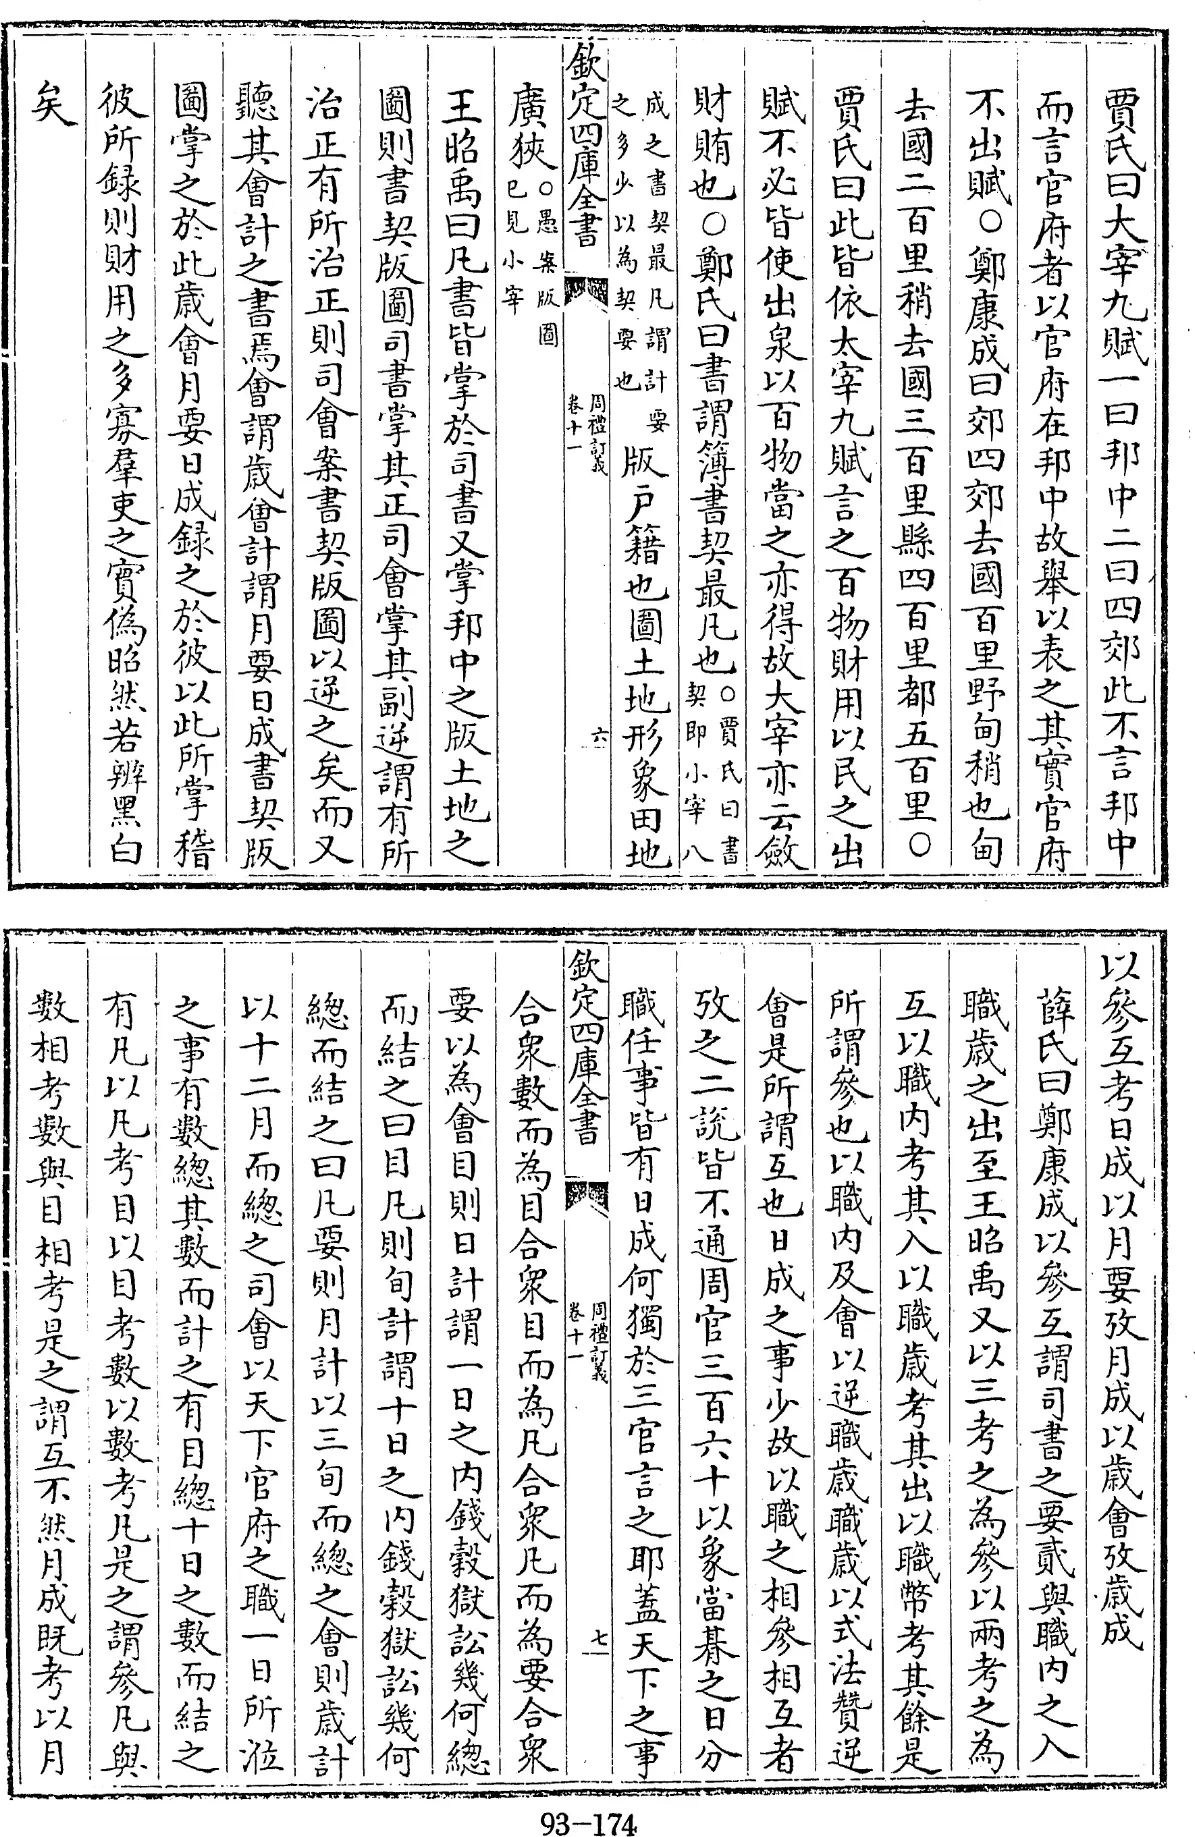 賈氏曰大宰九賦一曰邦中二曰四郊此不言邦中
而言官府者以官府在邦中故舉以表之其實官府
不出賦○鄭康成曰郊四郊去國百里野甸稍也甸
去國二百里稍去國三百里縣四百里都五百里○
賈氏曰此皆依太宰九賦言之百物財用以民之出
賦不必皆使出泉以百物當之亦得故大宰亦云斂
財賄也○鄭氏曰書謂簿書契最凡也○賈氏曰書
契即小宰八
成之書契最凡謂計要
之多少以為契要也版戶籍也圖土地形象田地
欽定四庫全書
周禮訂義
卷十一
六
廣狹○愚案版圖
已見小宰
王昭禹曰凡書皆掌於司書又掌邦中之版土地之
圖則書契版圖司書掌其正司會掌其副逆謂有所
治正有所治正則司會案書契版圖以逆之矣而又
聽其會計之書焉會謂歲會計謂月要日成書契版
圖掌之於此歲會月要日成録之於彼以此所掌稽
彼所録則財用之多寡羣吏之實偽昭然若辨黑白
矣
以參互考日成以月要攷月成以歲會攷歲成
薛氏曰鄭康成以參互謂司書之要貳與職内之入
職歲之出至王昭禹又以三考之為參以兩考之為
互以職内考其入以職歲考其出以職幣考其餘是
所謂參也以職内及會以逆職歲職歲以式法贊逆
會是所謂互也日成之事少故以職之相參相互者
攷之二說皆不通周官三百六十以象當朞之日分
職任事皆有日成何獨於三官言之耶蓋天下之事
欽定四庫全書
周禮訂義
卷十一
七
合衆數而為目合衆目而為凡合衆凡而為要合衆
要以為會目則日計謂一日之内錢穀獄訟幾何總
而結之曰目凡則旬計謂十日之内錢穀獄訟幾何
總而結之曰凡要則月計以三旬而總之會則歲計
以十二月而總之司會以天下官府之職一日所涖
之事有數總其數而計之有目總十日之數而結之
有凡以凡考目以目考數以數考凡是之謂參凡與
數相考數與目相考是之謂互不然月成既考以月
93-174